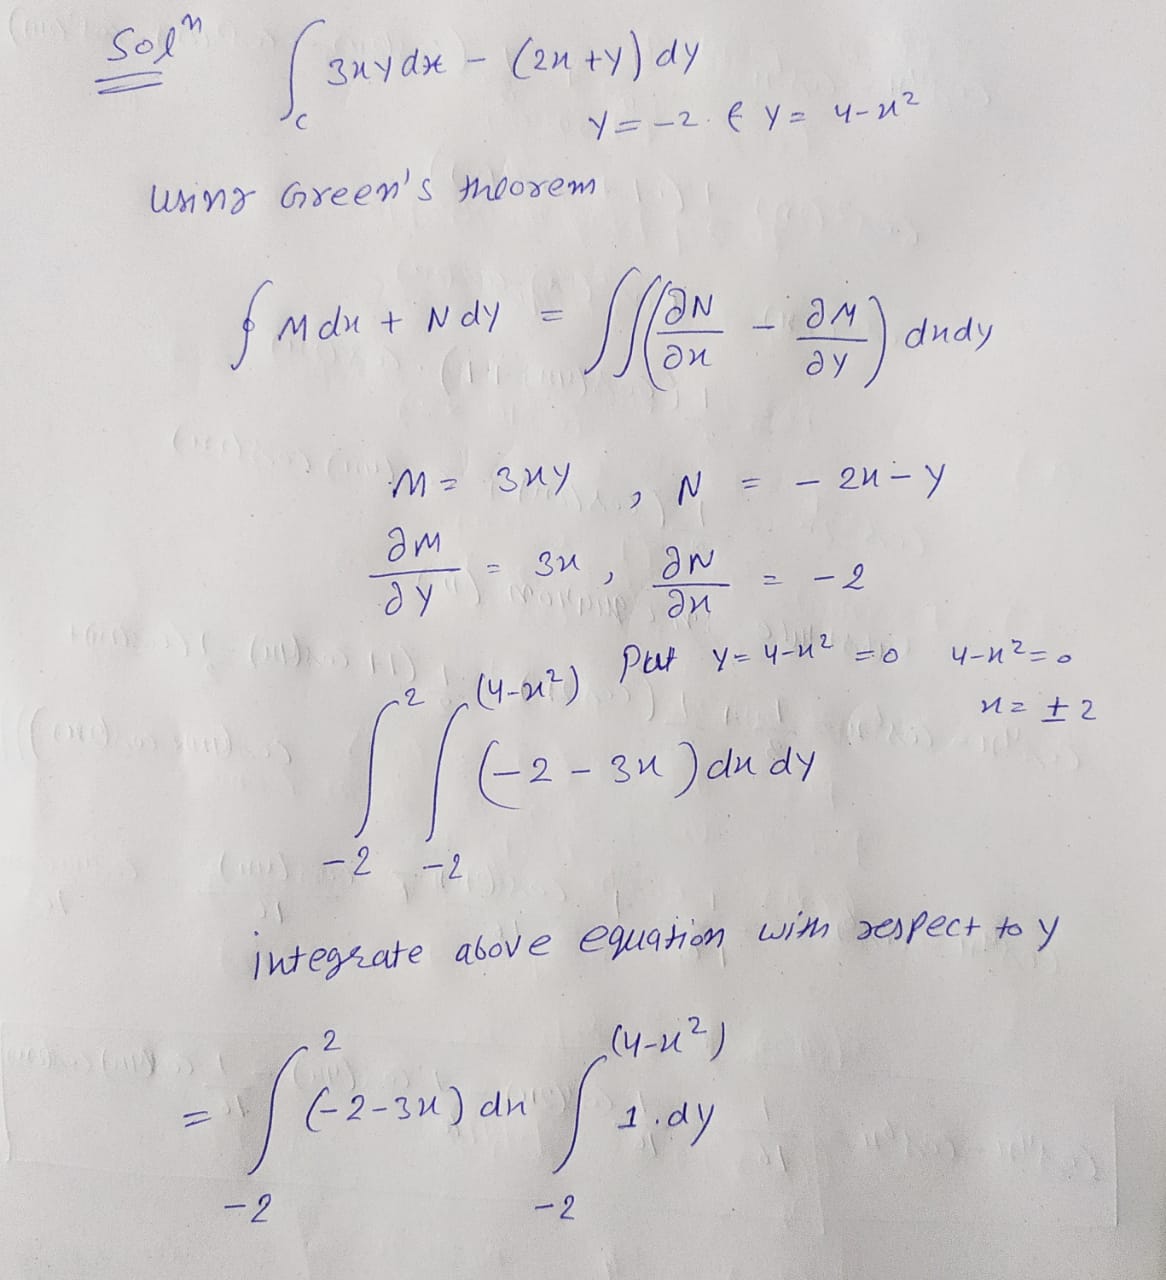 Solⁿ ∫_C 3xy dx - (2x+y) dy
y = -2 & y = 4-x²
Using Green's theorem
∮ M dx + N dy = ∬ (∂N/∂x - ∂M/∂y) dxdy
M = 3xy , N = - 2x - y
∂M/∂y = 3x , ∂N/∂x = -2
Put y = 4-x² = 0 4-x² = 0
x = ± 2
∫_{-2}^{2} ∫_{-2}^{(4-x²)} (-2 - 3x) dx dy
integrate above equation with respect to y
= ∫_{-2}^{2} (-2-3x) dx ∫_{-2}^{(4-x²)} 1.dy